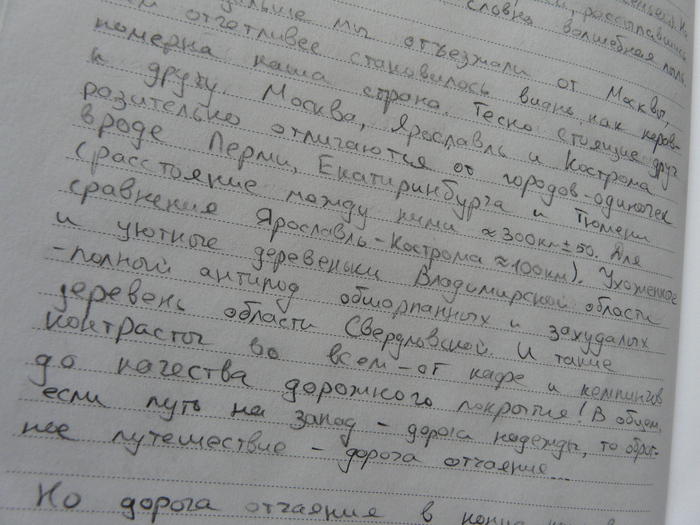 рассыпавшись
словна волшебная пыль.
мы отъезжали от Москвы,
отчетливее становилось видно, как нерав-
номерна наша страна. Тесно стоящие друг
к другу Москва, Ярославль и Кострома
разительно отличаются от городов-одиночек
вроде Перми, Екатиринбурга и Тюмени
(расстояние между ними ≈300км±50. Для
сравнения Ярославль-Кострома ≈100км). Ухоженные
и уютные деревеньки Владимирской области
-полный антипод обшарпанных и захудалых
деревень области Свердловской. И такие
контрасты во всем-от кафе и кемпингов
до качества дорожного покрытия! В общем,
если путь на запад - дорога надежды, то обрат-
ное путешествие - дорога отчаяния...
Но дорога отчаяния в конце